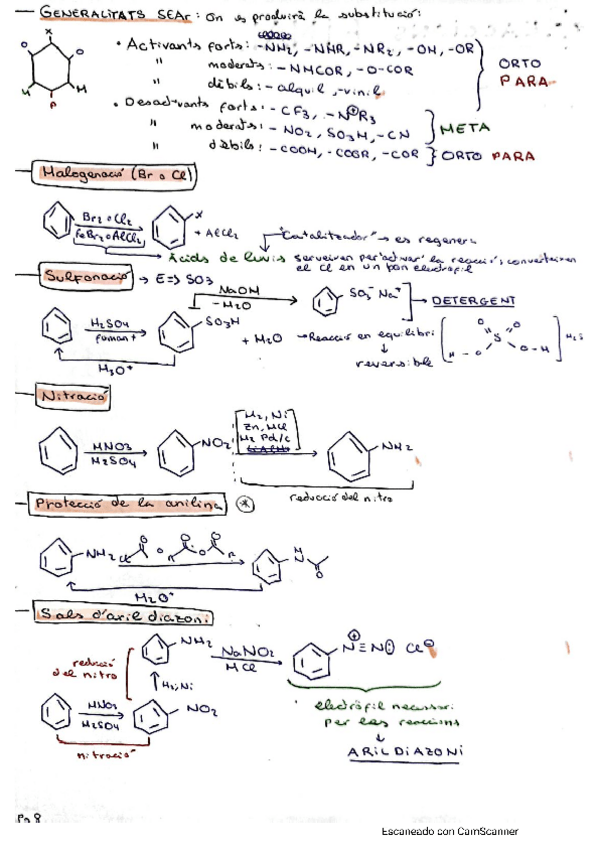 — GENERALITATS SEAr: On es produirà la substitució:
X
O O
M M
P
• Activants forts: -NH2, -NHR, -NR2, -OH, -OR
" moderats: -NHCOR, -O-COR
" dèbils: - alquil, -vinil
ORTO
PARA
• Desactivants forts: -CF3, -N⊕R3
" moderats: -NO2, SO3H, -CN
META
" dèbils: -COOH, -COOR, -COR
ORTO PARA
— Halogenació (Br o Cl)
Br2 o Cl2
FeBr3 o AlCl3
X
+ AlCl3
"Catalitzador" → es regenera
Àcids de Lewis serveixen per "activar" la reacció, converteixen
el Cl en un bon electròfil
— Sulfonació → E => SO3
H2SO4
fumant
H3O+
SO3H
+ H2O
NaOH
-H2O
SO3- Na+
→ DETERGENT
→ Reacció en equilibri
↓
reversible
O O
S
H-O O-H
— Nitració
HNO3
H2SO4
NO2
H2, Ni
Zn, HCl
H2 Pd/C
LiAlH4
NH2
reducció del nitro
— Protecció de la anilina *
NH2
Cl O
O O
R O R
H
N
O
H2O+
— Sals d'aril diazoni
reducció
del nitro
NH2
NaNO2
HCl
⊕
N≡N Cl⊖
↑ H2, Ni
HNO3
H2SO4
NO2
nitració
electròfil necessari
per les reaccions
↓
ARIL DIAZONI
Pg 8
Escaneado con CamScanner